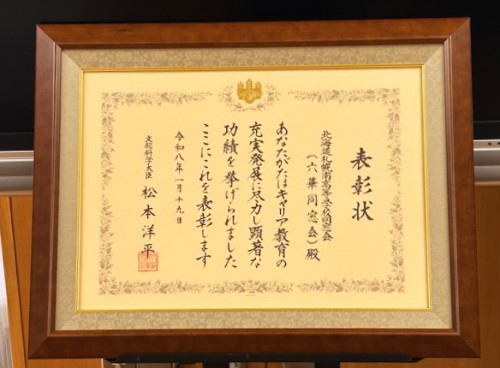 表彰状
北海道札幌南高等学校同窓会
(六華同窓会)殿
あなたがたはキャリア教育の
充実発展に尽力し顕著な
功績を挙げられました
ここにこれを表彰します
令和八年一月十九日
文部科学大臣 松本洋平